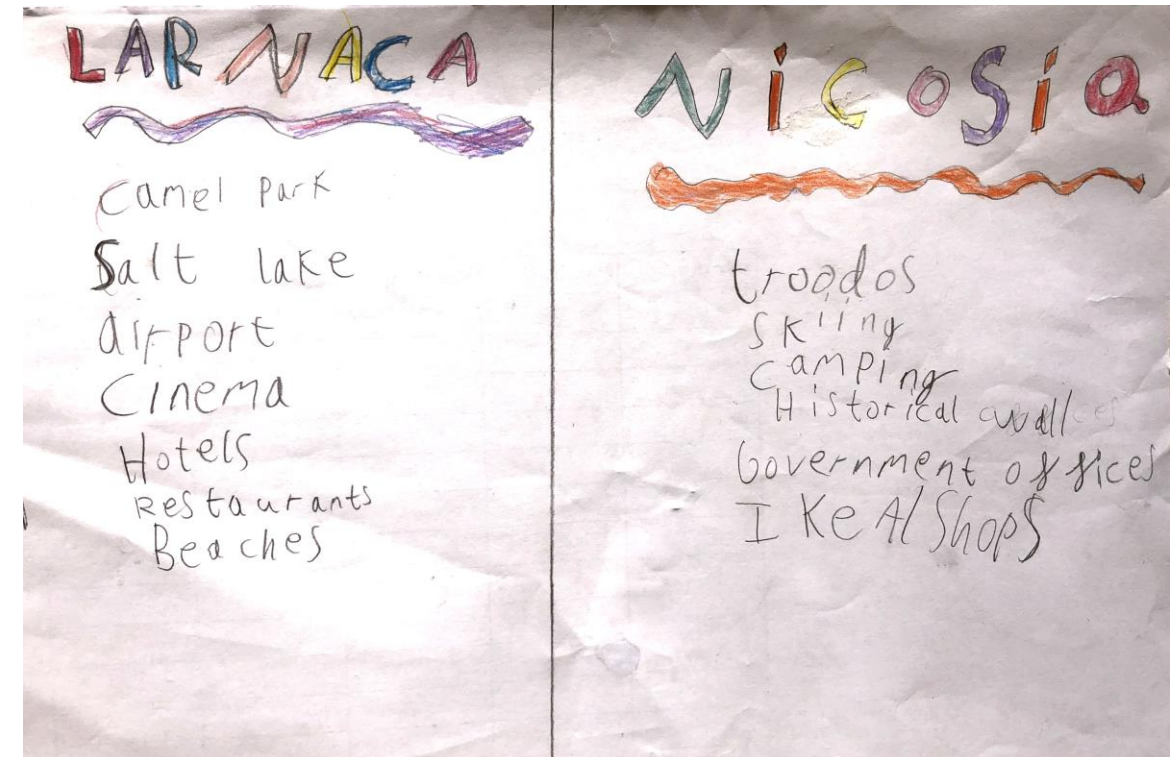 LARNACA
camel park
Salt lake
airport
Cinema
Hotels
Restaurants
Beaches
NiCoSia
troodos
skiing
camping
Historical
Government offices
IKeA/Shops